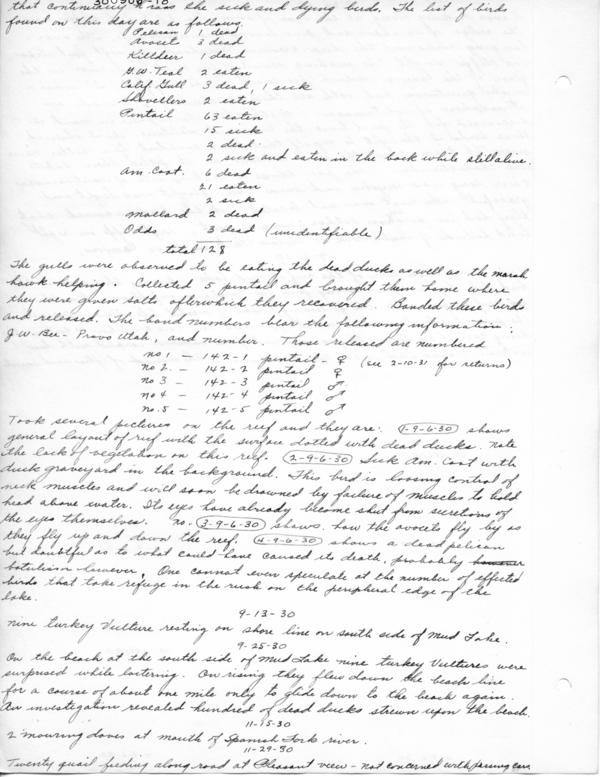 300906-18
that continually cross the sick and dying birds. The list of birds
found on this day are as follows.
Pelican 1 dead
Avocet 3 dead
Killdeer 1 dead
G.W. Teal 2 eaten
Calif. Gull 3 dead, 1 sick
Shovellers 2 eaten
Pintail 63 eaten
15 sick
2 dead.
2 sick and eaten in the back while still alive.
Am. Coot. 6 dead
21 eaten
2 sick
Mallard 2 dead
Odds 3 dead (unidentifiable)
total 128
The gulls were observed to be eating the dead ducks as well as the marsh
hawk helping. Collected 5 pintail and brought them home where
they were given salts afterwhich they recovered. Banded these birds
and released. The band numbers bear the following information:
J.W. Bee - Provo Utah, and number. Those released are numbered
no 1 - 142-1 pintail - ♀ (see 2-10-31 for returns)
no 2. - 142-2 pintail ♀
no 3 - 142-3 pintail ♂
no 4 - 142-4 pintail ♂
no. 5 - 142-5 pintail ♂
Took several pictures on the reef and they are: 1-9-6-30 shows
general layout of reef with the surface dotted with dead ducks. Note
the lack of vegetation on this reef. 2-9-6-30 Sick Am. Coot with
duck graveyard in the background. This bird is loosing control of
neck muscles and will soon be drowned by failure of muscles to hold
head above water. Its eyes have already become shut from secretions of
the eyes themselves. no. 3-9-6-30 shows how the avocets fly by as
they fly up and down the reef. 4-9-6-30 shows a dead pelican
but doubtful as to what could have caused its death, probably however
botulism however. One cannot even speculate at the number of effected
birds that take refuge in the rush on the peripheral edge of the
lake.
9-13-30
nine turkey Vulture resting on shore line on south side of Mud Lake.
9-25-30
On the beach at the south side of Mud Lake nine turkey Vultures were
surprised while loitering. On rising they flew down the beach line
for a course of about one mile only to glide down to the beach again.
An investigation revealed hundred of dead ducks strewn upon the beach.
11-15-30
2 mourning doves at mouth of Spanish Fork river.
11-29-30
Twenty quail feeding along road at Pleasant view - not concerned with passing cars